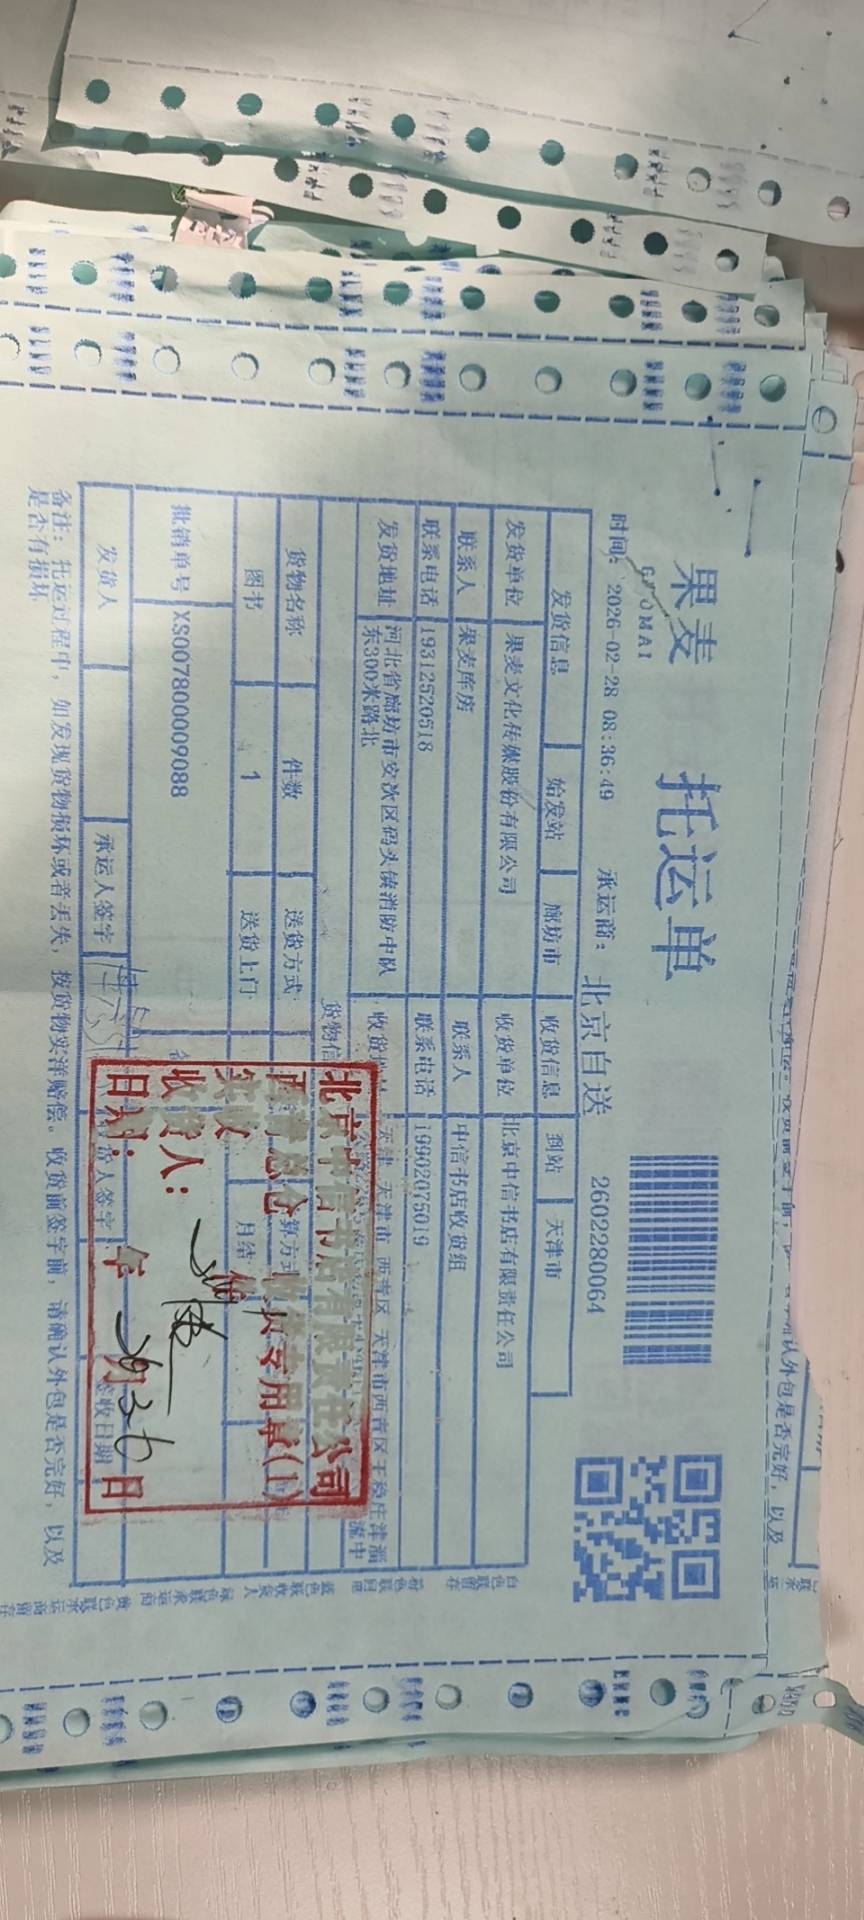 果麦
GUOMAI
托运单
时间: 2026-02-28 08:36:49 承运商: 北京自送 2602280064
发货信息 始发站 廊坊市 收货信息 到站 天津市
发货单位 果麦文化传媒股份有限公司 收货单位 北京中信书店有限责任公司
联系人 果麦库房 联系人 中信书店收货组
联系电话 19312520518 联系电话 19902075019
发货地址 河北省廊坊市安次区码头镇消防中队东300米路北
收货 天津 天津市 西青区 天津市西青区王稳庄津淄
流中
货物信
货物名称 件数 送货方式 算方式
图书 1 送货上门 月结
批销单号 XS007800009088
发货人 承运人签字 货人签字 签收日期
备注: 托运过程中, 如发现货物损坏或者丢失, 按货物实洋赔偿。收货前签字前, 请确认外包是否完好, 以及
是否有损坏
北京中信书店有限责任公司
西青总仓 收货专用章(1)
实收 件
收货人:
日期: 年 月26日
白色联留存 粉色联回单 蓝色联收货人 绿色联承运商 黄色联承运商留存